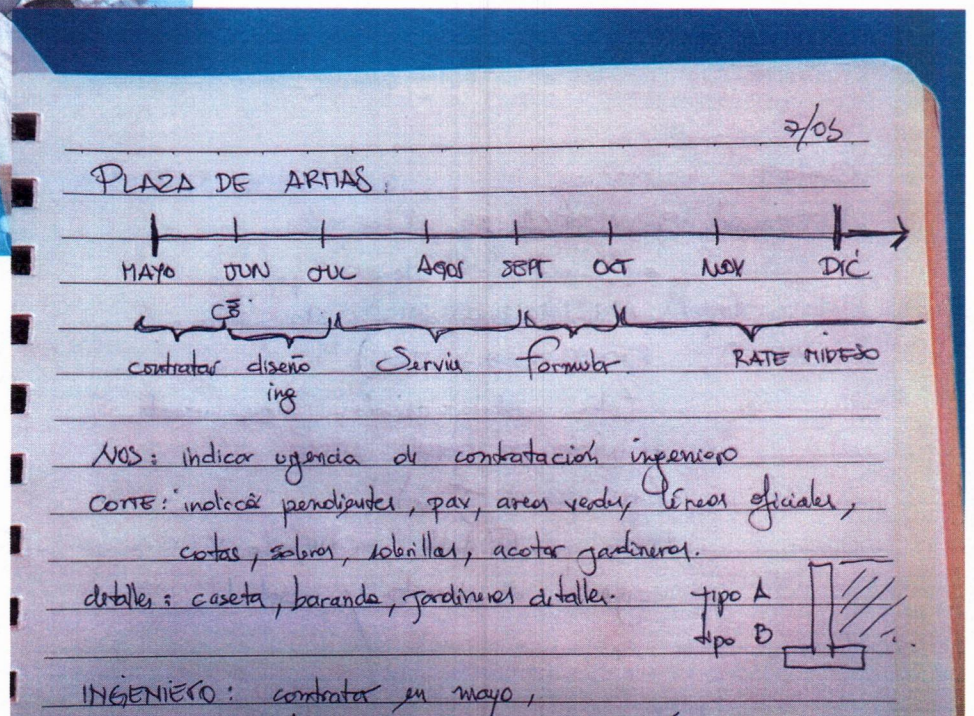 7/05
PLAZA DE ARMAS.
MAYO JUN JUL AGOS SEPT OCT NOV DIC
contratar diseño ing Serviu formular. RATE MIDESO
NOS: indicar urgencia de contratación ingeniero
CORTE: indicar pendientes, pav, areas verdes, líneas oficiales,
cotas, soleras, solerillas, acotar jardineras.
detalles: caseta, baranda, jardineras detalles.
tipo A
tipo B
INGENIERO: contratar en mayo,